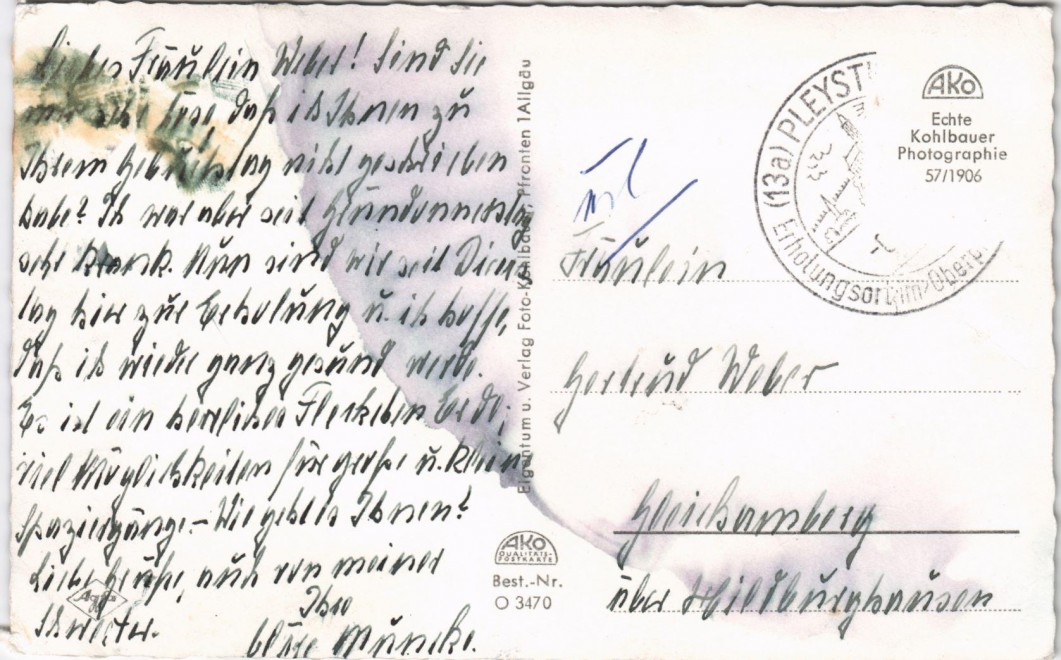 Liebes Fräulein Weber! Sind Sie
mir sehr böse, daß ich Ihnen zu
Ihrem Geburtstag nicht geschrieben
habe? Ich war aber seit Gründonnerstag
sehr krank. Nun sind wir seit Diens-
tag hier zur Erholung u. ich hoffe,
daß ich wieder ganz gesund werde.
Es ist ein herrliches Fleckchen Erde;
viel Möglichkeiten für große u. kleine
Spaziergänge. – Wie geht es Ihnen?
Liebe Grüße, auch von meiner
Schwester.
Ihre
Müncke.
Eigentum u. Verlag Foto-Kohlbauer, Pfronten 1 Allgäu
AKO
QUALITÄTS-
POSTKARTE
Best.-Nr.
O 3470
Agfa
(13a) PLEYST
Erholungsort im Oberpf
AKO
Echte
Kohlbauer
Photographie
57/1906
Fräulein
Gertrud Weber
Gleichamberg
über Hildburghausen